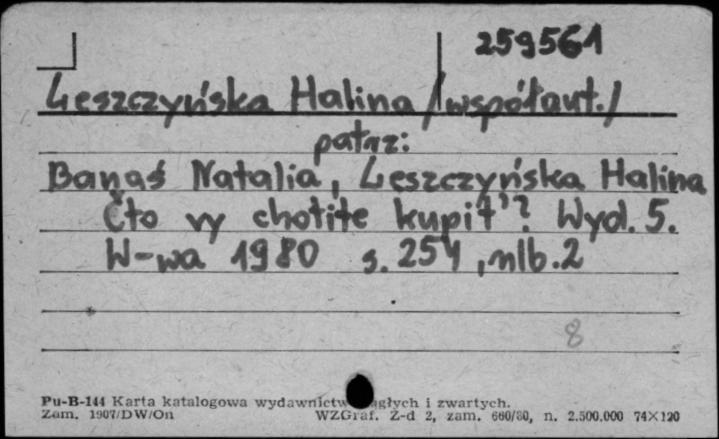 259561
Leszczyńska Halina /współaut./
patrz:
Banaś Natalia, Leszczyńska Halina
Čto vy chotite kupit'? Wyd. 5.
W-wa 1980 s. 254, nlb. 2
8
Pu-B-144 Karta katalogowa wydawnictw ciągłych i zwartych.
Zam. 1907/DW/On WZGraf. Z-d 2, zam. 660/80, n. 2.500.000 74×120